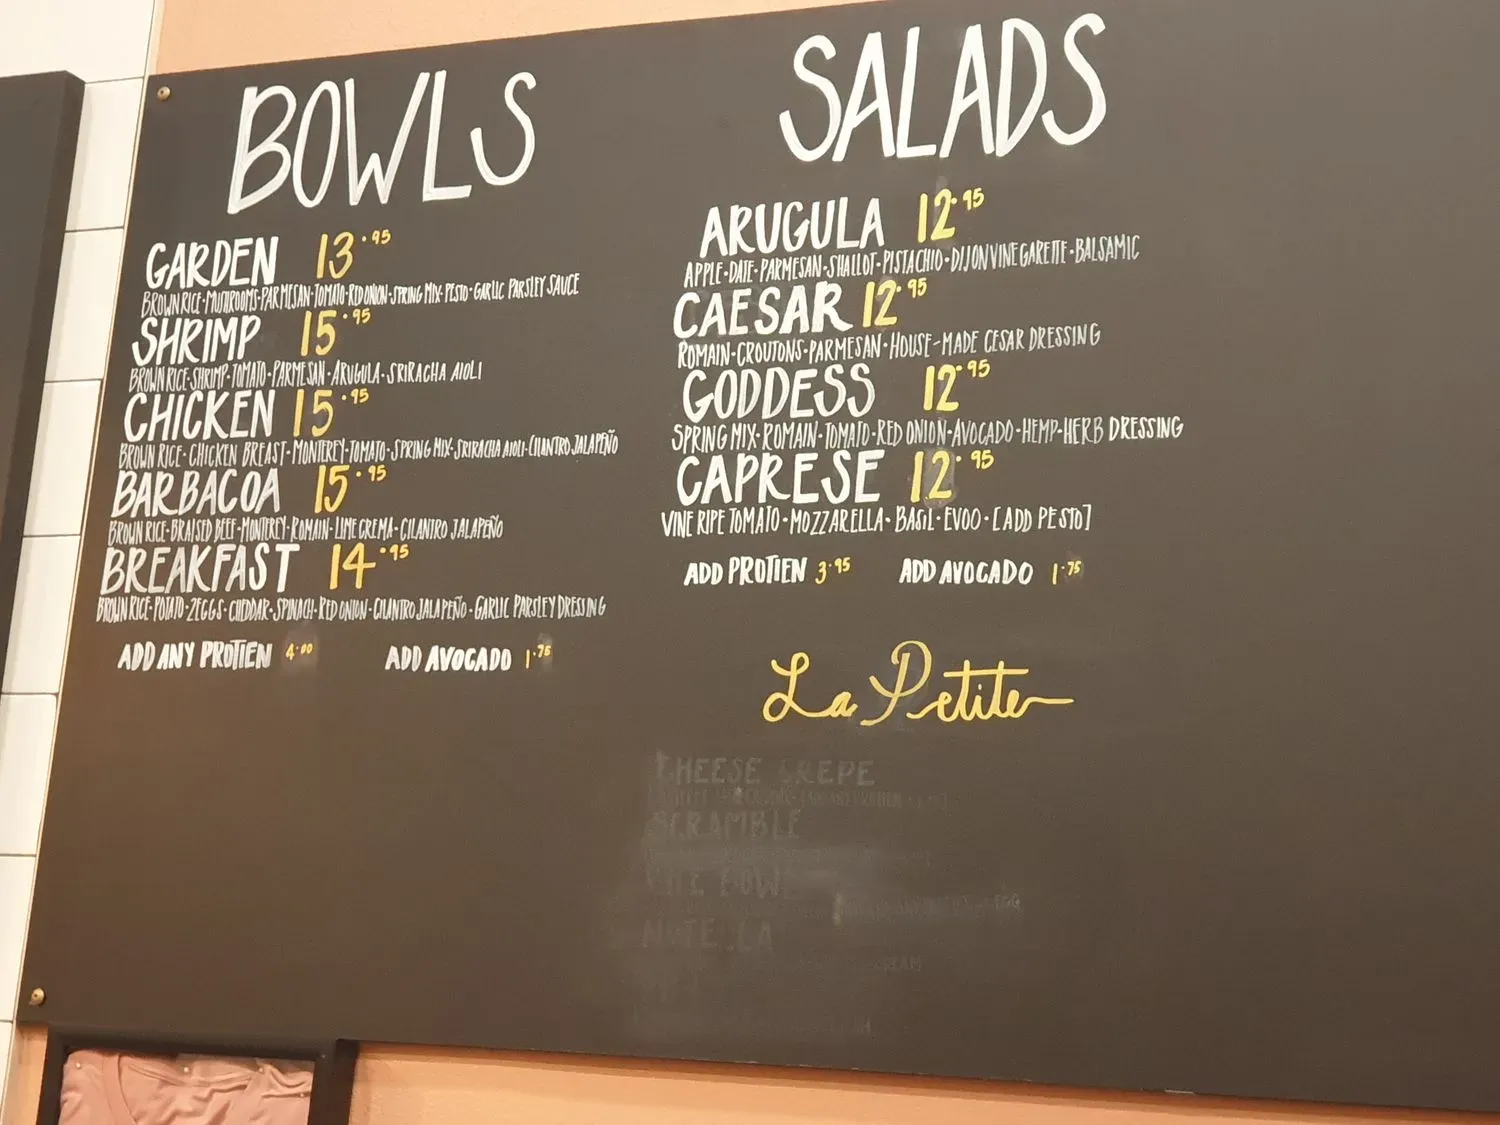 BOWLS
GARDEN 13.95
BROWN RICE·MUSHROOMS·PARMESAN·TOMATO·RED ONION·SPRING MIX·PESTO·GARLIC PARSLEY SAUCE
SHRIMP 15.95
BROWN RICE·SHRIMP·TOMATO·PARMESAN·ARUGULA·SRIRACHA AIOLI
CHICKEN 15.95
BROWN RICE·CHICKEN BREAST·MONTEREY·TOMATO·SPRING MIX·SRIRACHA AIOLI·CILANTRO JALAPEÑO
BARBACOA 15.95
BROWN RICE·BRAISED BEEF·MONTEREY·ROMAIN·LIME CREMA·CILANTRO JALAPEÑO
BREAKFAST 14.95
BROWN RICE·POTATO·2EGGS·CHEDDAR·SPINACH·RED ONION·CILANTRO JALAPEÑO·GARLIC PARSLEY DRESSING
ADD ANY PROTIEN 4.00 ADD AVOCADO 1.75
SALADS
ARUGULA 12.95
APPLE·DATE·PARMESAN·SHALLOT·PISTACHIO·DIJON VINEGARETTE·BALSAMIC
CAESAR 12.95
ROMAIN·CROUTONS·PARMESAN·HOUSE-MADE CESAR DRESSING
GODDESS 12.95
SPRING MIX·ROMAIN·TOMATO·RED ONION·AVOCADO·HEMP·HERB DRESSING
CAPRESE 12.95
VINE RIPE TOMATO·MOZZARELLA·BASIL·EVOO·[ADD PESTO]
ADD PROTIEN 3.95 ADD AVOCADO 1.75
La Petite
CHEESE CREPE
SCRAMBLE
NUTELLA